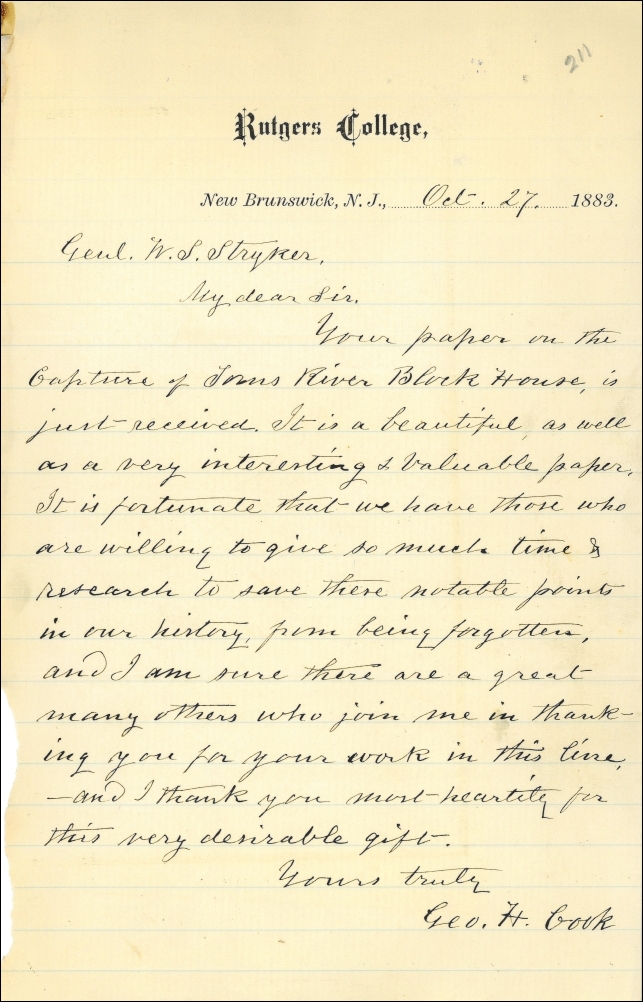 211
Rutgers College,
New Brunswick, N. J., Oct. 27. 1883.
Genl. W. S. Stryker,
My dear Sir.
Your paper on the
Capture of Toms River Block House, is
just received. It is a beautiful, as well
as a very interesting & valuable paper.
It is fortunate that we have those who
are willing to give so much time &
research to save these notable points
in our history, from being forgotten,
and I am sure there are a great
many others who join me in thank-
ing you for your work in this line,
—and I thank you most heartily for
this very desirable gift.
Yours truly
Geo. H. Cook